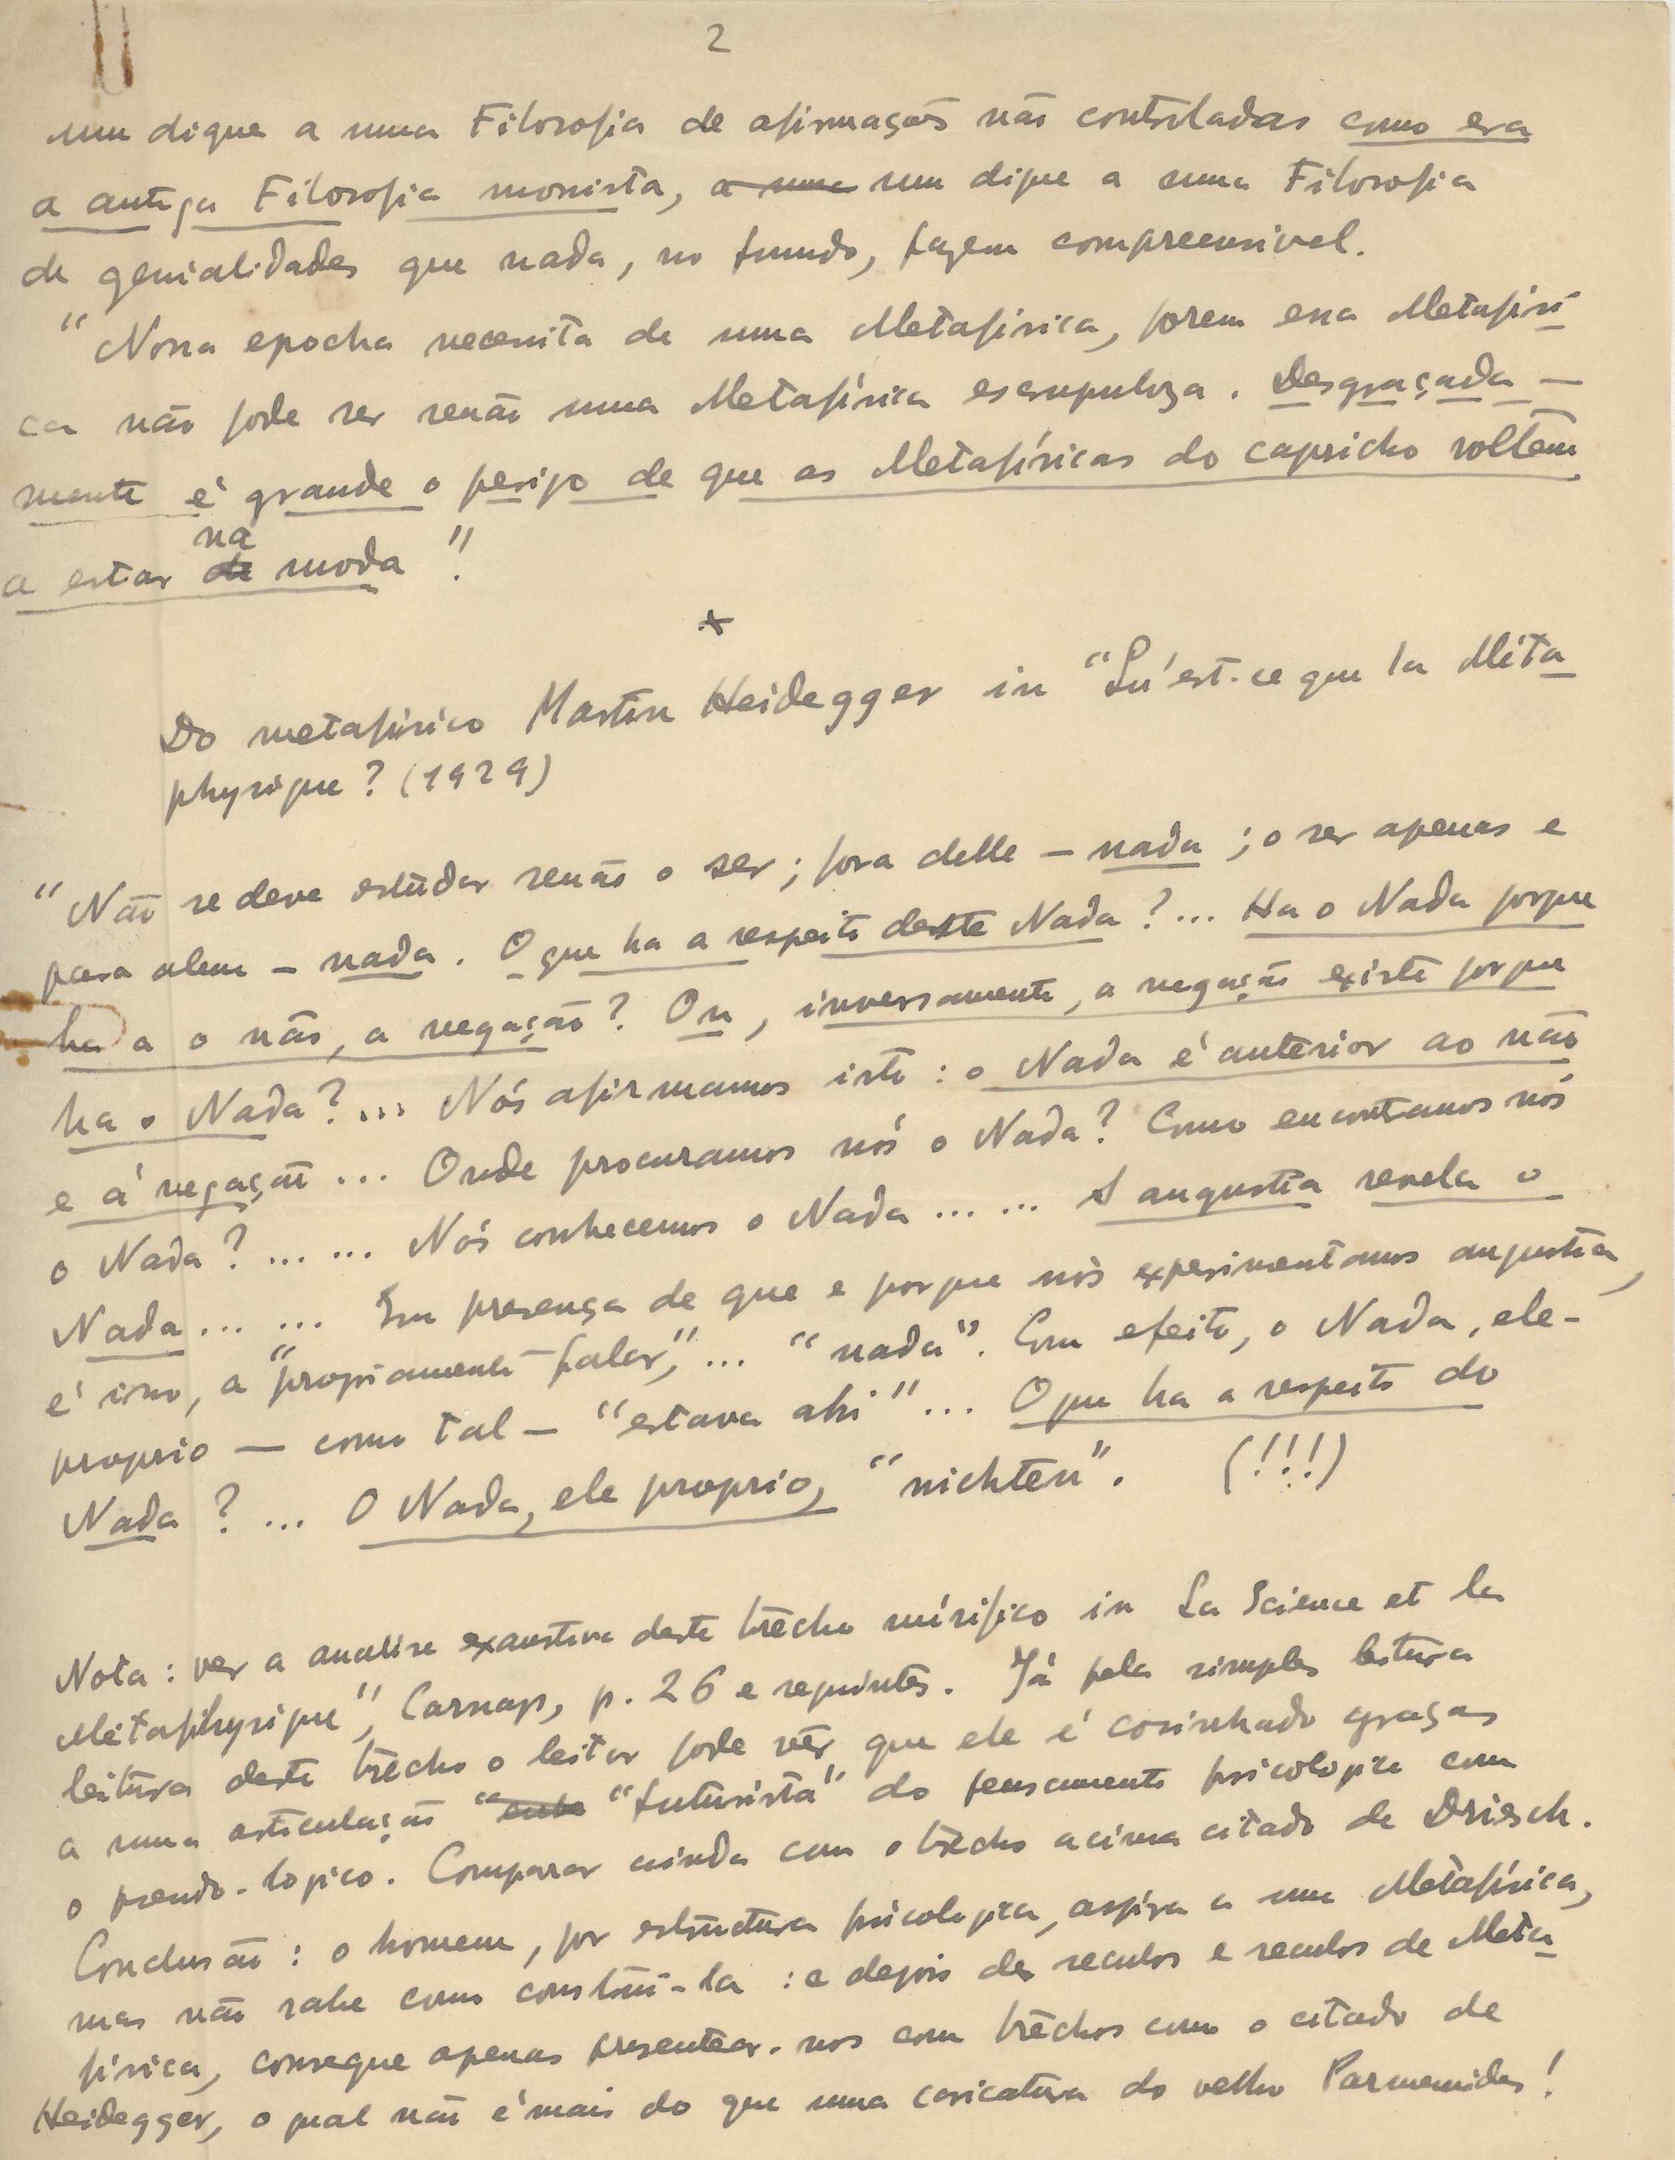 2
um dique a uma Filosofia de afirmações não controladas como era
a antiga Filosofia monista, a uma um dique a uma Filosofia
de genialidades que nada, no fundo, fazem compreensivel.
"Nossa epocha necessita de uma Metafísica, porem essa Metafísi
ca não pode ser senão uma Metafísica escrupuloza. Desgraçada —
mente é grande o perigo de que as Metafísicas do capricho voltem
na
a estar de moda"!
*
Do metafísico Martin Heidegger in "Qu'est-ce que la Méta
physique? (1929)
"Não se deve estudar senão o ser; fora delle — nada; o ser apenas e
para alem — nada. O que ha a respeito deste Nada?... Ha o Nada porque
ha a o não, a negação? Ou, inversamente, a negação existe porque
ha o Nada?... Nós afirmamos isto: o Nada é anterior ao não
e á negação... Onde procuramos nós o Nada? Como encontramos nós
o Nada?... ... Nós conhecemos o Nada... ... A angustia revela o
Nada... ... Em presença de que e porque nós experimentamos angustia,
é isso, a "propriamente falar",... "nada". Com efeito, o Nada, ele-
proprio — como tal — "estava ahi"... O que ha a respeito do
Nada?... O Nada, ele proprio, "nichten". (!!!)
Nota: ver a analise exaustiva deste trecho mirifico in La Science et la
Métaphysique", Carnap, p. 26 e seguintes. Já pela simples leitura
leitura deste trecho o leitor pode vêr que ele é cosinhado graças
a uma articulação "cuba "futurista" do pensamento psicologico com
o pseudo-logico. Comparar ainda com o trecho acima citado de Driesch.
Conclusão: o homem, por estructura psicologica, aspira a uma Metafísica,
mas não sabe como construi-la: e depois de seculos e seculos de Meta
física, consegue apenas presentear-nos com trechos como o citado de
Heidegger, o qual não é mais do que uma caricatura do velho Parmenides!